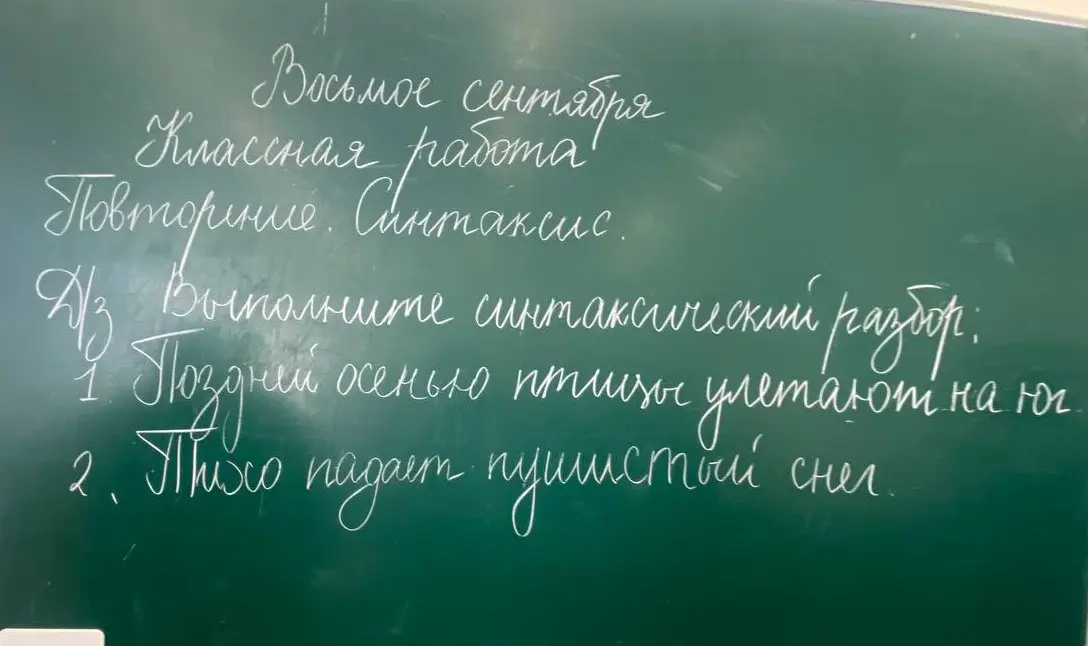 Восьмое сентября
Классная работа
Повторение. Синтаксис.
Д/з Выполните синтаксический разбор:
1. Поздней осенью птицы улетают на юг
2. Тихо падает пушистый снег.